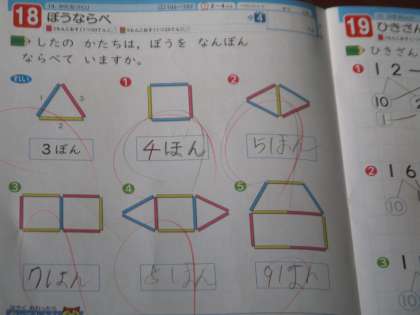 18
ぼうならべ
4
したの かたちは，ぼうを なんぼん
ならべて いますか。
れい
1
2
3
3ぼん
❶
4ほん
❷
5ほん
❸
7ほん
❹
8ほん
❺
9ほん
19
ひきざん
ひきざん
❶
12
10
1
❷
16
10
❸
1